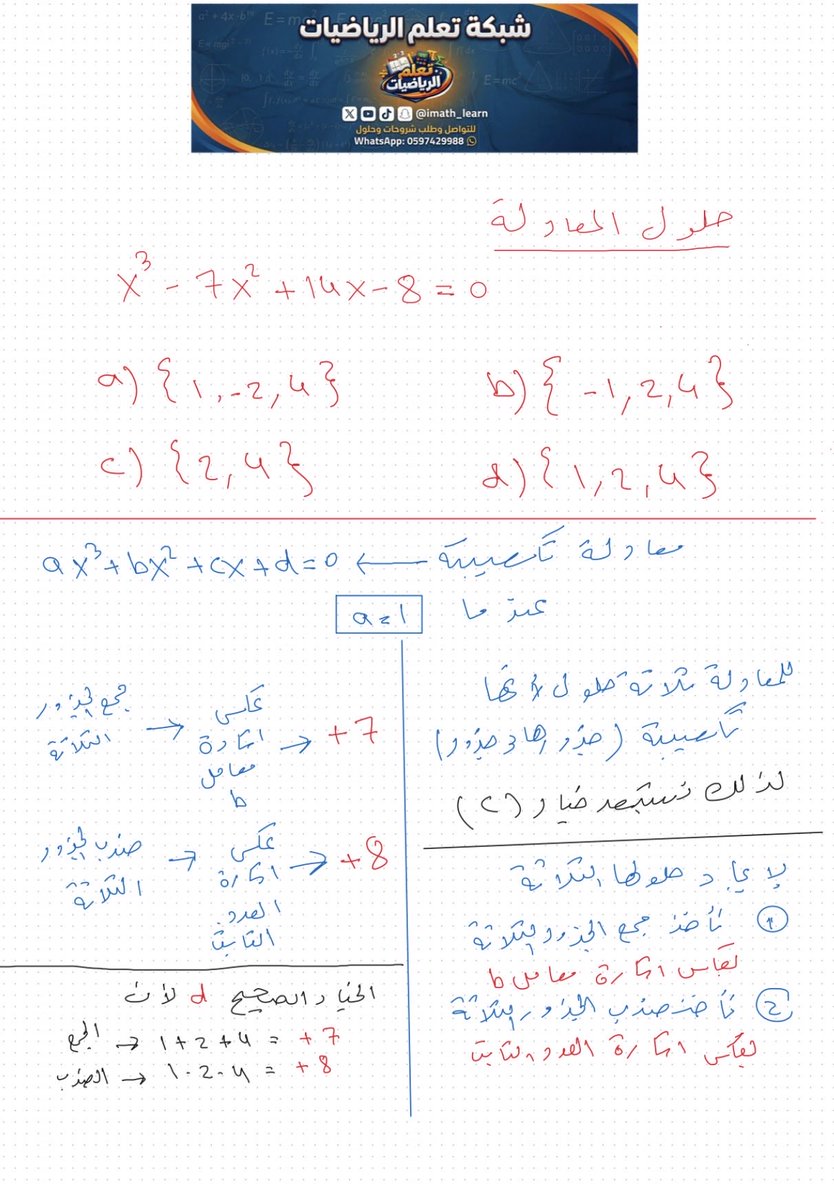 شبكة تعلم الرياضيات
تعلم
الرياضيات
@imath_learn
للتواصل وطلب شروحات وحلول
WhatsApp: 0597429988
حلول المعادلة
x³ - 7x² + 14x - 8 = 0
a) {1, -2, 4}
b) {-1, 2, 4}
c) {2, 4}
d) {1, 2, 4}
معادلة تكعيبية ← ax³ + bx² + cx + d = 0
عندما a=1
للمعادلة ثلاثة حلول لأنها
تكعيبية (جذورها 3 جذور)
لذلك نستبعد خيار (c)
لإيجاد حلولها الثلاثة
① نأخذ جمع الجذور الثلاثة
بعكس اشارة معامل b
② نأخذ ضرب الجذور الثلاثة
بعكس اشارة العدد الثابت
جمع الجذور
الثلاثة
→
عكس
اشارة
معامل
b
→ +7
ضرب الجذور
الثلاثة
→
عكس
اشارة
العدد
الثابت
→ +8
الخيار الصحيح d لأن
الجمع → 1+2+4 = +7
الضرب → 1·2·4 = +8